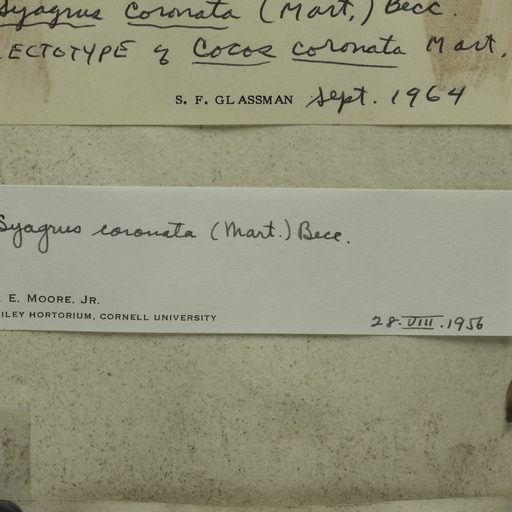 Syagrus coronata (Mart.) Becc.
LECTOTYPE of Cocos coronata Mart.
S. F. GLASSMAN Sept. 1964
Syagrus coronata (Mart.) Becc.
E. MOORE, JR.
ILEY HORTORIUM, CORNELL UNIVERSITY
28.VIII.1956